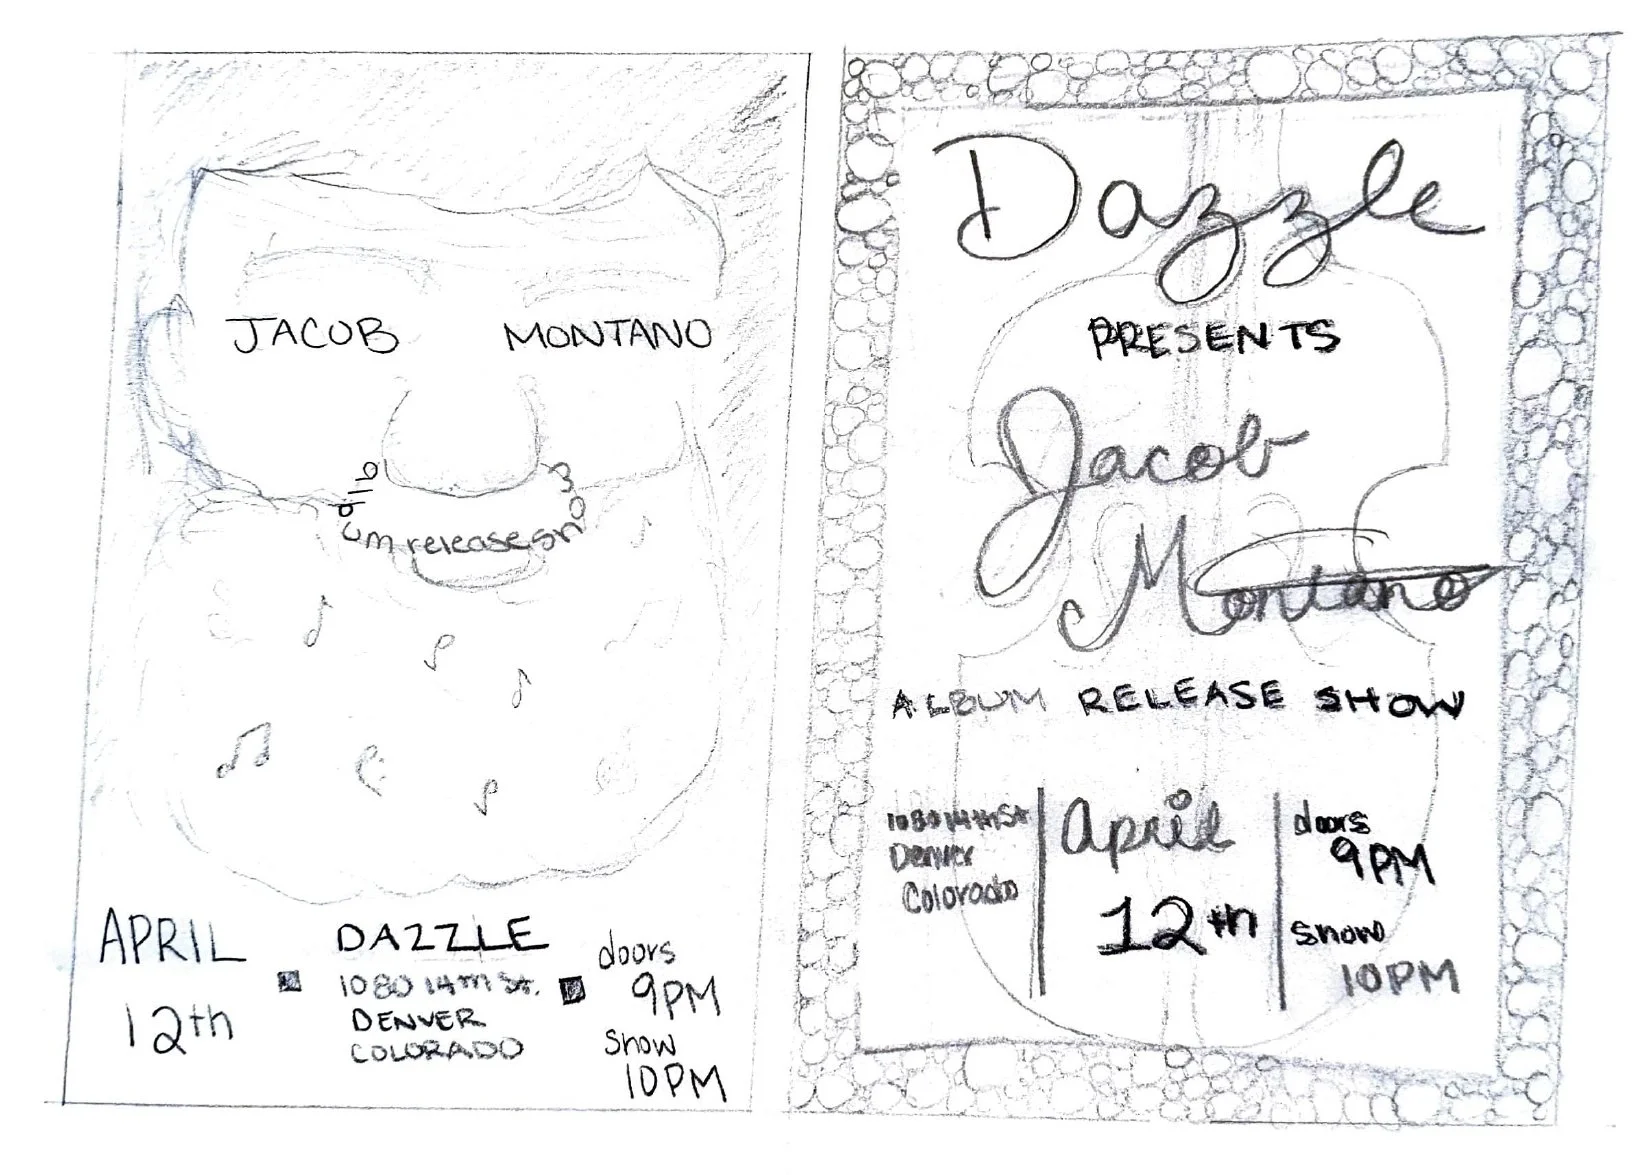 JACOB MONTANO
album release show
APRIL
12th
DAZZLE
1080 14th St.
DENVER
COLORADO
doors
9PM
show
10PM
Dazzle
PRESENTS
Jacob
Montano
ALBUM RELEASE SHOW
1080 14th St
Denver
Colorado
April
12th
doors
9PM
show
10PM